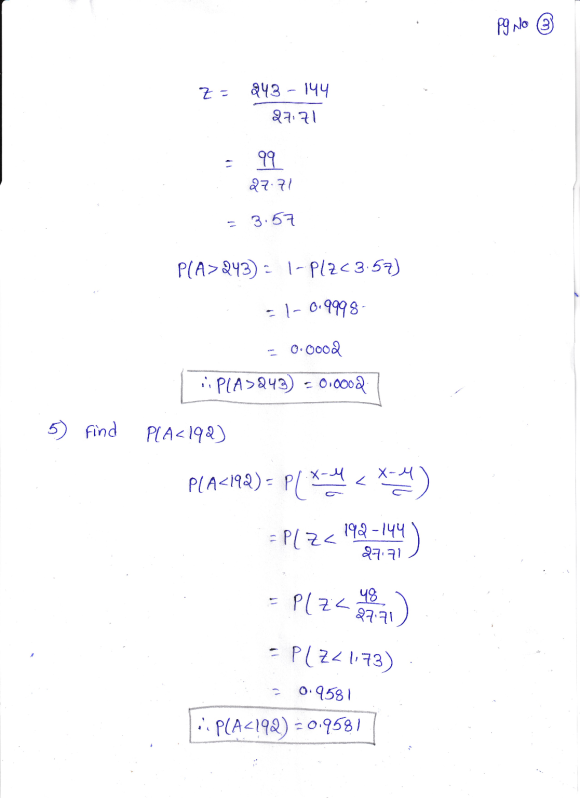 Pg No 3
Z = 243 - 144 / 27.71
= 99 / 27.71
= 3.57
P(A>243) = 1-P(Z<3.57)
= 1- 0.9998
= 0.0002
∴ P(A>243) = 0.0002
5) Find P(A<192)
P(A<192) = P( X-μ / σ < X-μ / σ )
= P( Z < 192-144 / 27.71 )
= P( Z < 48 / 27.71 )
= P( Z < 1.73)
= 0.9581
∴ P(A<192) = 0.9581